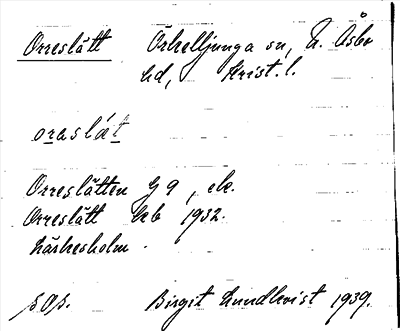 Orreslätt Örkelljunga sn, N. Åsbo
hd, Krist. l.
oraslæt
Orreslätten G 9, ek.
Orreslätt hcb 1932.
Lärkesholm.
p.o.p. Birgit Lundkvist 1939.